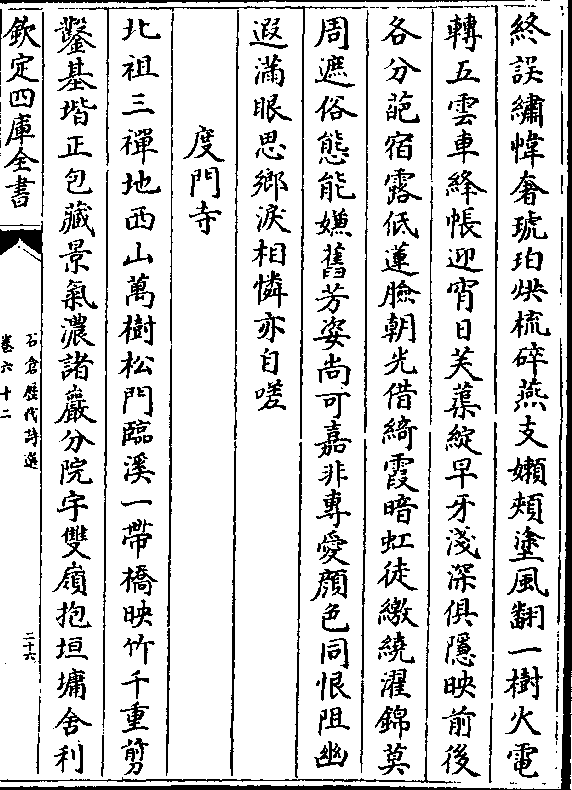 終誤繡幃奢琥珀烘梳碎燕支嬾頰塗風翻一樹火電
轉五雲車絳帳迎宵日芙蕖綻早牙淺深俱隱映前後
各分葩宿露低蓮臉朝光借綺霞暗虹徒繳繞濯錦莫
周遮俗態能嫌舊芳姿尚可嘉非專愛顔色同恨阻幽
遐滿眼思鄉淚相憐亦自嗟
度門寺
北祖三禪地西山萬樹松門臨溪一帶橋映竹千重剪
鑿基堦正包藏景氣濃諸巖分院宇雙嶺抱垣墉舍利
欽定四庫全書
石倉歷代詩選
卷六十二
二十六